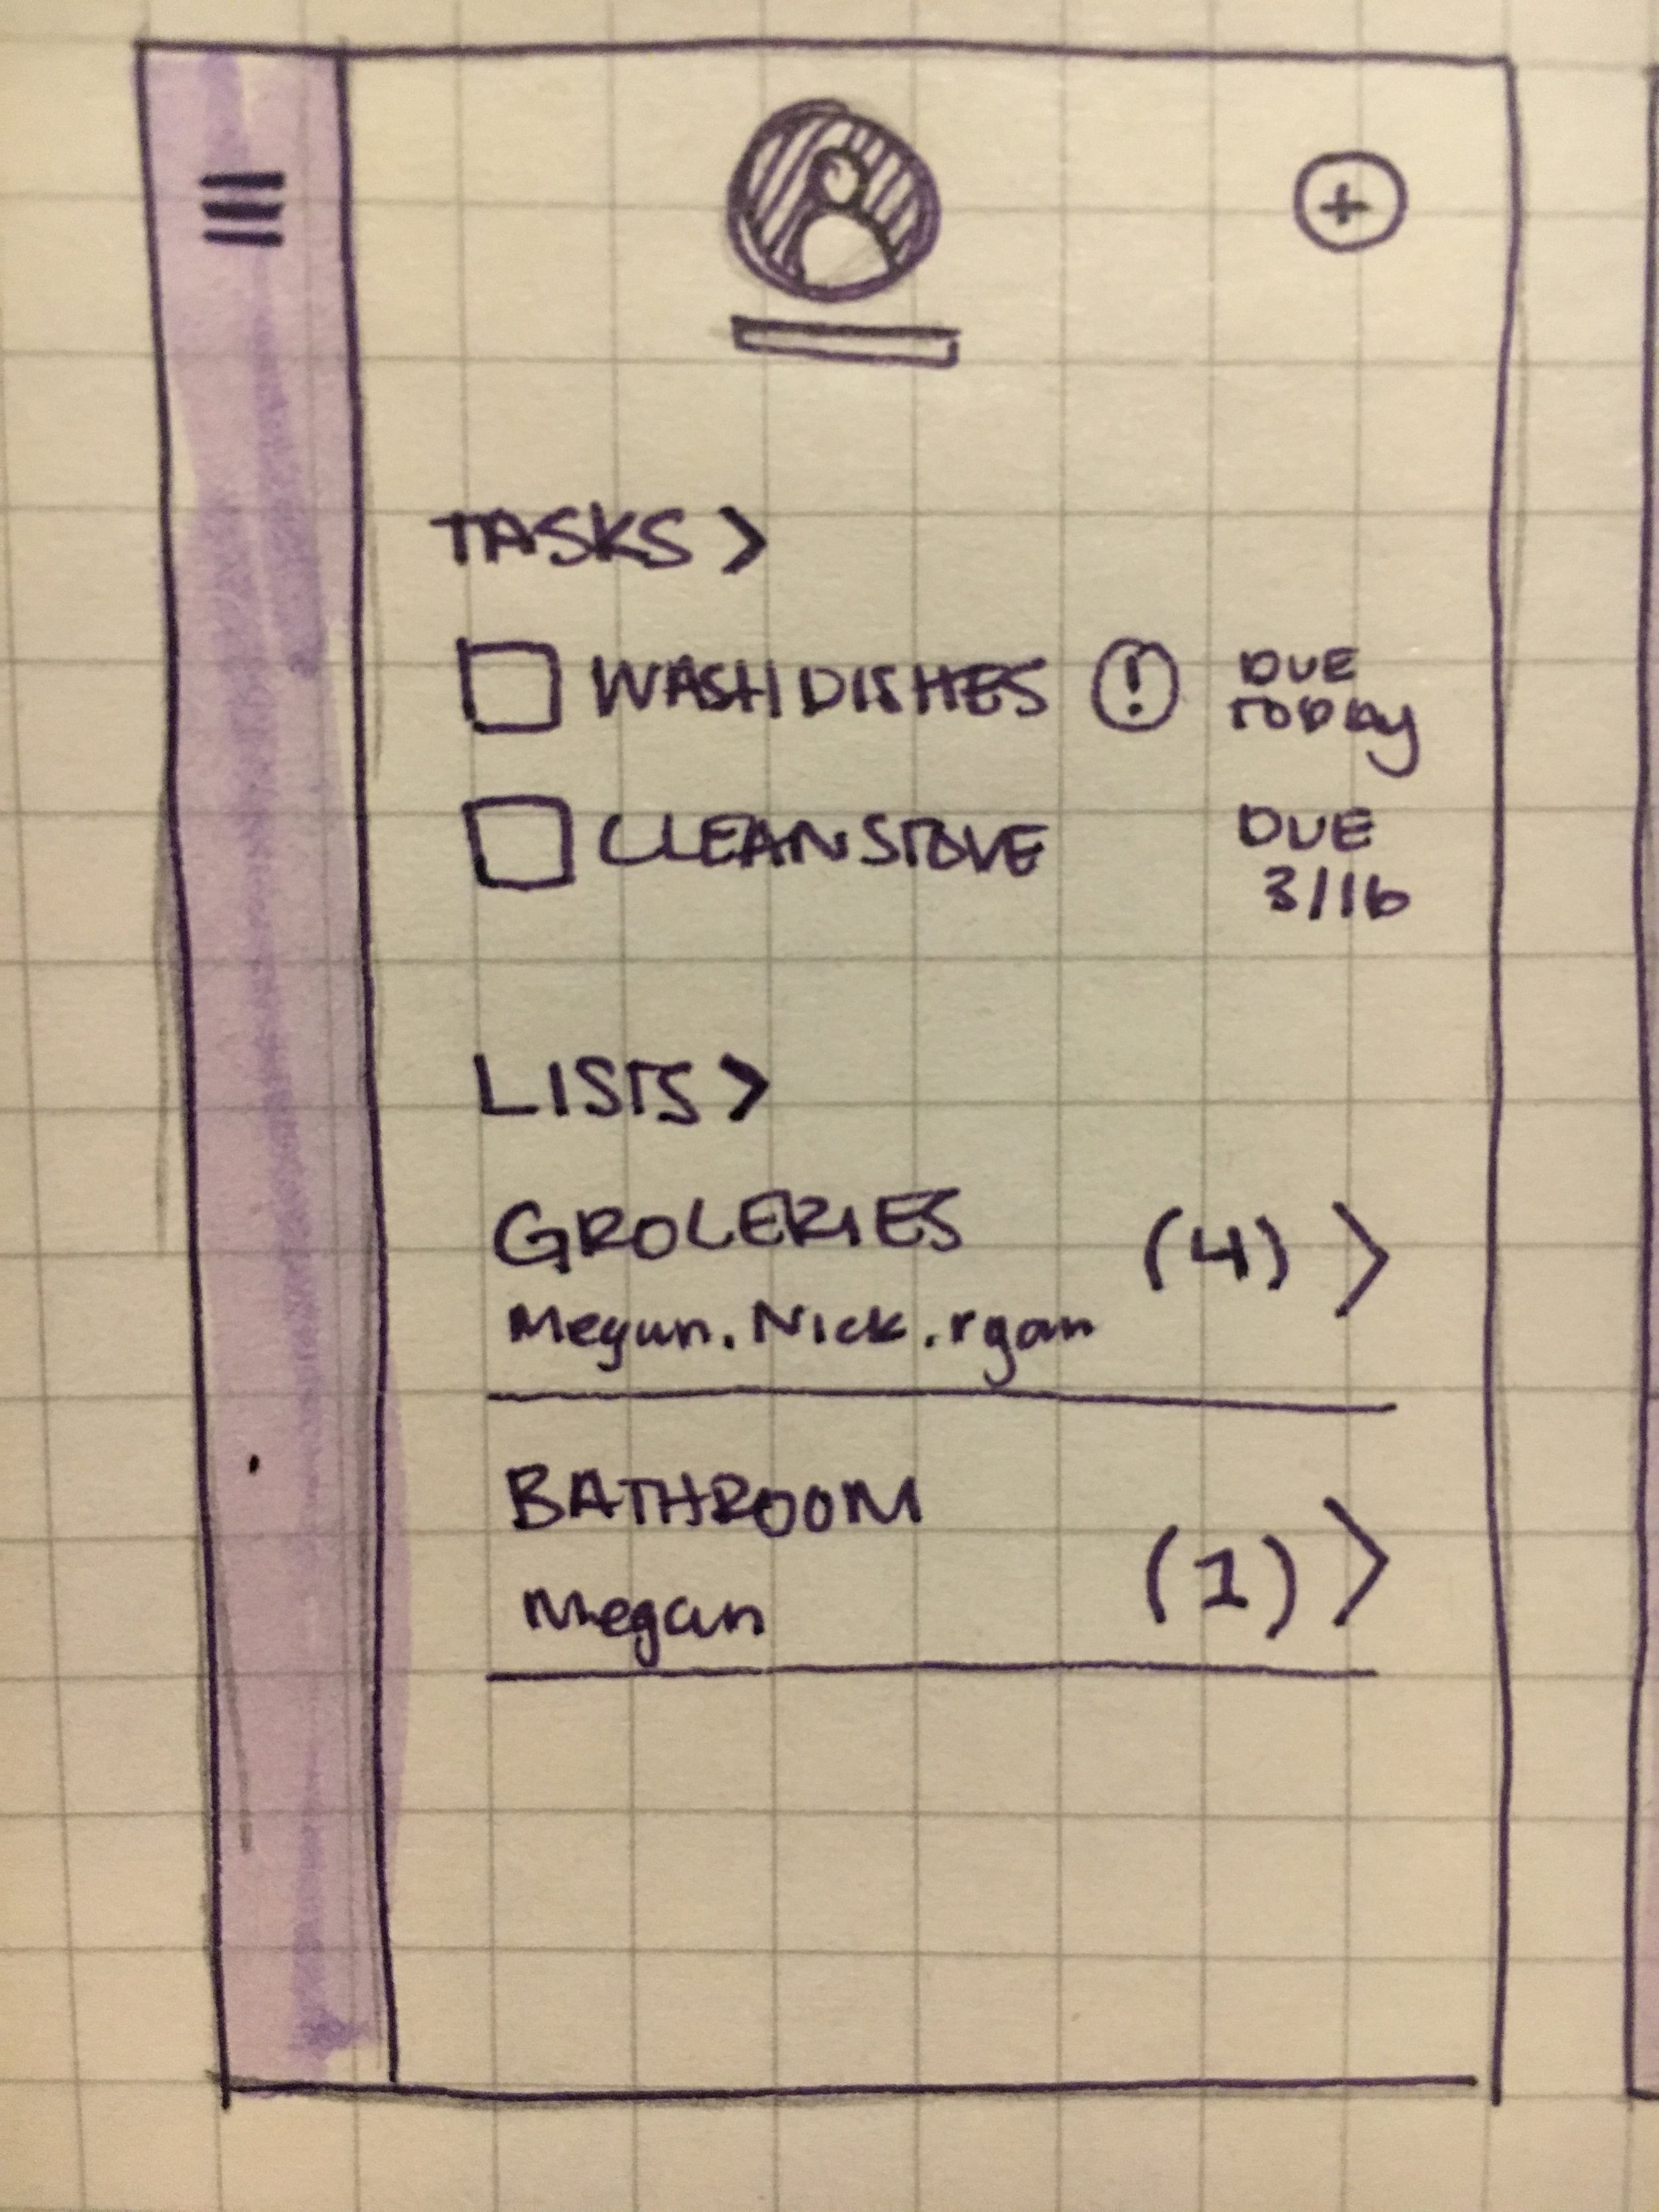 TASKS >
WASH DISHES ! DUE TODAY
CLEAN STOVE DUE 3/16
LISTS >
GROCERIES (4) >
Megan. Nick. ryan
BATHROOM (1) >
Megan